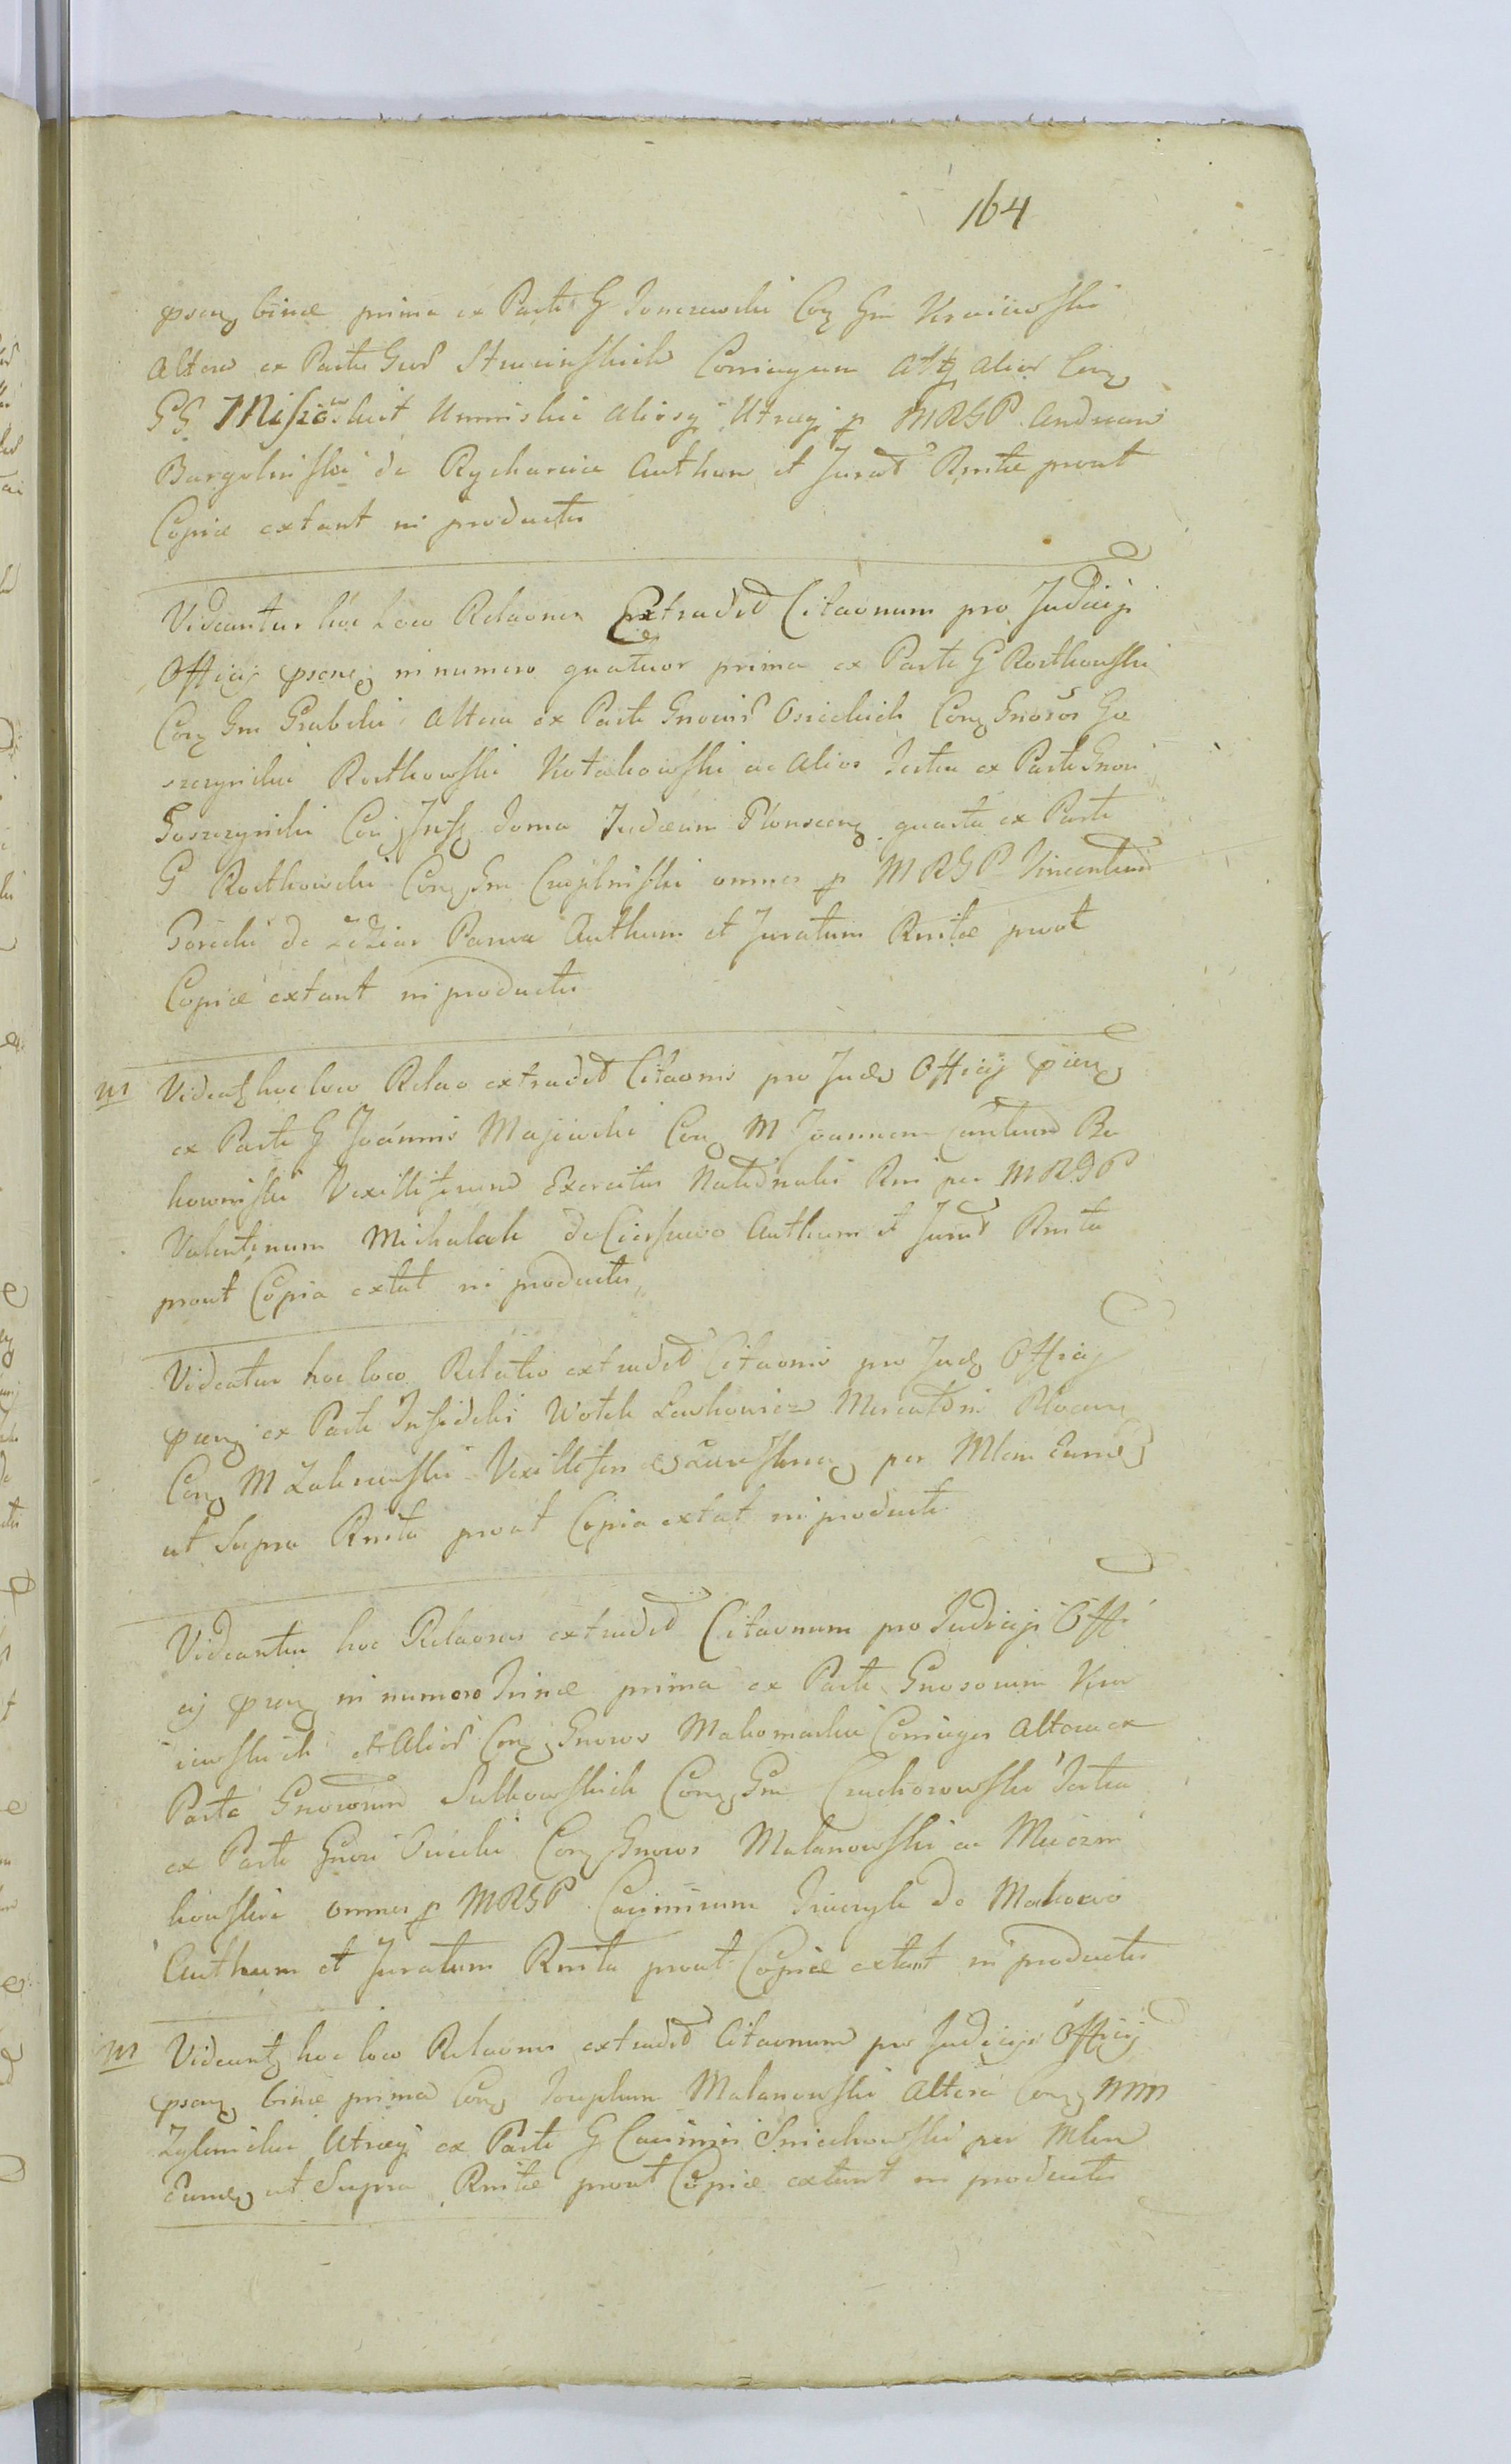 164
psens binæ prima ex Parte G Jonczewski Con Gm Kraiewski
Altera ex Parte Gnor Strucinskich Conjugum Atq Alior Con
GG Misiowskich Uminskie Aliosq Utraq p MRGP Andream
Bargolinski de Rycharcice Authum et Jurat Rnitæ prout
Copiæ extant in productis
Videantur hoc Loco Relaones Extradit Citaonum pro Judicijs
Officij psens in numero quatuor prima ex Parte G Rostkowski
Con Gm Grabski Altera ex Parte Gnorum Osieckich Con Gnosos Go
szczynskie Rostkowski Kotakowski ac Alios Tertia ex Parte Gnosi
Goszczynski Con Infq Joma Judæum Plonscen quarta ex Parte
G Rostkowski Con Gm Czaplinski omnes p MRGP Vincentium
Gorecki de Parva Authum et Juratum Rnitæ prout
Copiæ extant in productis
m Videatq hoc loco Relao extradit Citaonis pro Judo Officij psens
ex Parte G Joannis Majewski Con M Joannem Cantium Bu
kowinski Vexilliferum Exercitus Nationalis Rni per MRGP
Valentinum Michalak de Ciarszewo Authum et Jurat Rnita
prout Copia extat in productis
Videatur hoc loco Relatio extradit Citaonis pro Judo Officij
psens ex Parte Infidelis Wolek Lewkowicz Mercatoris Plocens
Con M Zakrzewski Vexilliferi per Mlem Eund
ut Supra Rnita prout Copia extat in productis
Videantur hoc Relaones extradit Citaonum pro Judicijs Offi
cij psens in numero Trinæ prima ex Parte Gnosorum Kra
iewskich et Alior Con Gnosos Makomaskie Coniuges Altera ex
Parte Gnosorum Sulkowskich Con Gm Czachorowski Tertia
ex Parte Gnosi Osiecki Con Gnosos Malanowski ac Mieczni
kowskie omnes p MRGP Casimirum de Makowo
Authum et Juratum Rnita prout Copiæ extant in productis
m Videantq hoc loco Relaones extradit Citaonum pro Judicijs Officij
psens binæ prima Con Josephum Malanowski Altera Con MM
Zylinskie Utraq ex Parte G Casimiri Sniechowski per Mlem
Eund ut Supra Rnitæ prout Copiæ extant in productis